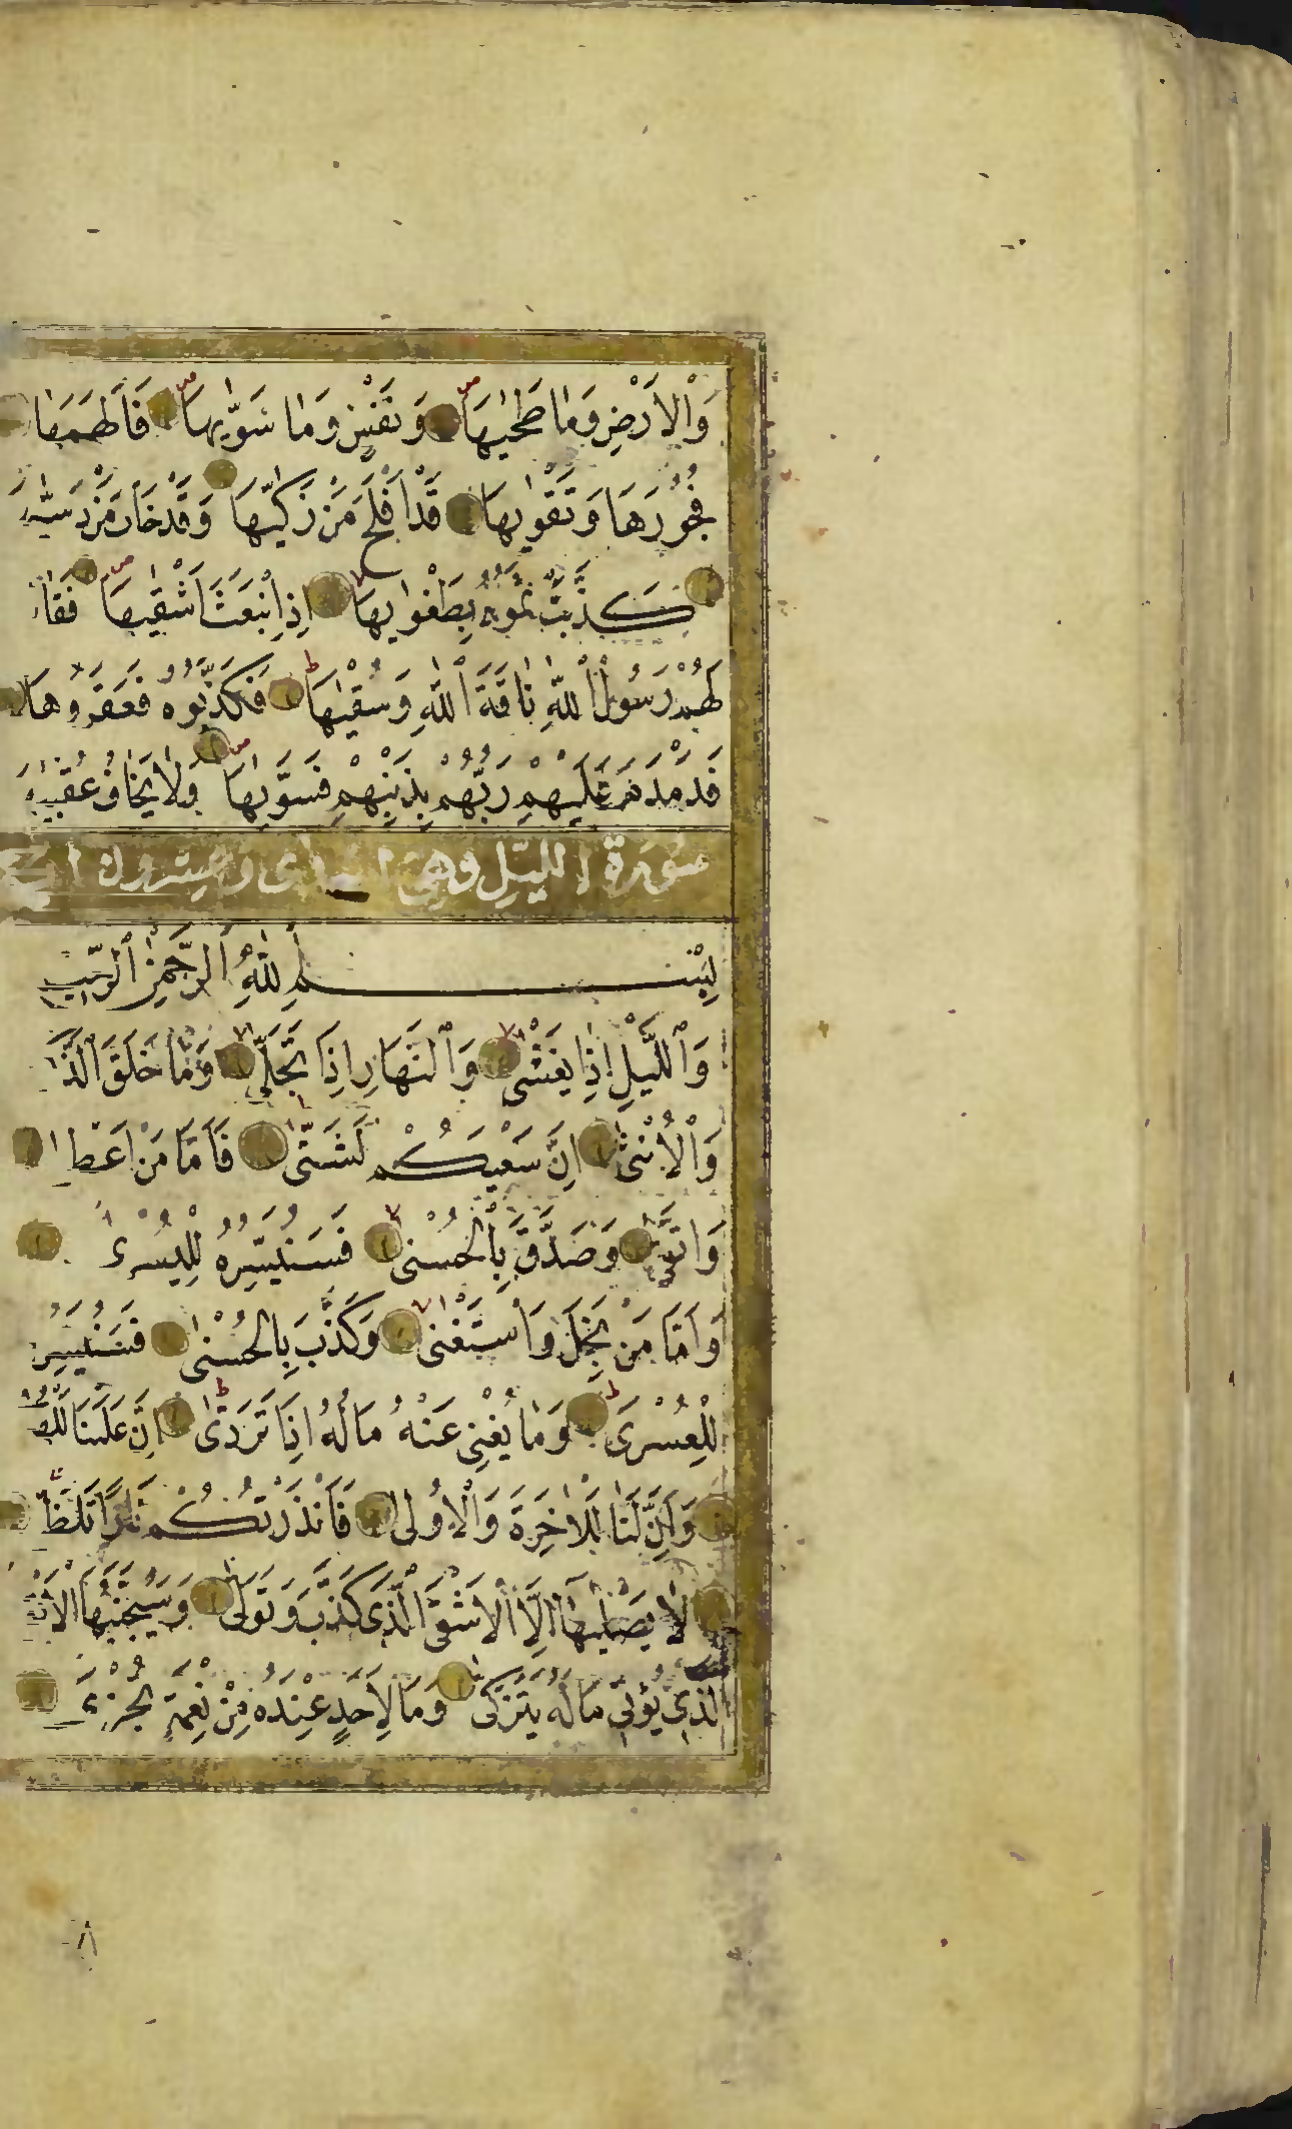 وَالْاَرْضِ وَمَا طَحٰيهَا وَنَفْسٍ وَمَا سَوّٰيهَا فَاَلْهَمَهَا
فُجُورَهَا وَتَقْوٰيهَا قَدْ اَفْلَحَ مَنْ زَكّٰيهَا وَقَدْ خَابَ مَنْ دَسّٰيهَا
كَذَّبَتْ ثَمُودُ بِطَغْوٰيهَا اِذِ انْبَعَثَ اَشْقٰيهَا فَقَالَ
لَهُمْ رَسُولُ اللّٰهِ نَاقَةَ اللّٰهِ وَسُقْيٰهَا فَكَذَّبُوهُ فَعَقَرُوهَا
فَدَمْدَمَ عَلَيْهِمْ رَبُّهُمْ بِذَنْبِهِمْ فَسَوّٰيهَا وَلَا يَخَافُ عُقْبٰيهَا
سورة الليل وهي احدى وعشرون اية
بِسْمِ اللّٰهِ الرَّحْمٰنِ الرَّحِيمِ
وَالَّيْلِ اِذَا يَغْشٰى وَالنَّهَارِ اِذَا تَجَلّٰى وَمَا خَلَقَ الذَّكَرَ
وَالْاُنْثٰى اِنَّ سَعْيَكُمْ لَشَتّٰى فَاَمَّا مَنْ اَعْطٰى
وَاتَّقٰى وَصَدَّقَ بِالْحُسْنٰى فَسَنُيَسِّرُهُ لِلْيُسْرٰى
وَاَمَّا مَنْ بَخِلَ وَاسْتَغْنٰى وَكَذَّبَ بِالْحُسْنٰى فَسَنُيَسِّرُهُ
لِلْعُسْرٰى وَمَا يُغْنِى عَنْهُ مَالُهُ اِذَا تَرَدّٰى اِنَّ عَلَيْنَا لَلْهُدٰى
وَاِنَّ لَنَا لَلْاٰخِرَةَ وَالْاُولٰى فَاَنْذَرْتُكُمْ نَارًا تَلَظّٰى
لَا يَصْلٰيهَا اِلَّا الْاَشْقَى الَّذِى كَذَّبَ وَتَوَلّٰى وَسَيُجَنَّبُهَا الْاَتْقَى
الَّذِى يُؤْتِى مَالَهُ يَتَزَكّٰى وَمَا لِاَحَدٍ عِنْدَهُ مِنْ نِعْمَةٍ تُجْزٰى